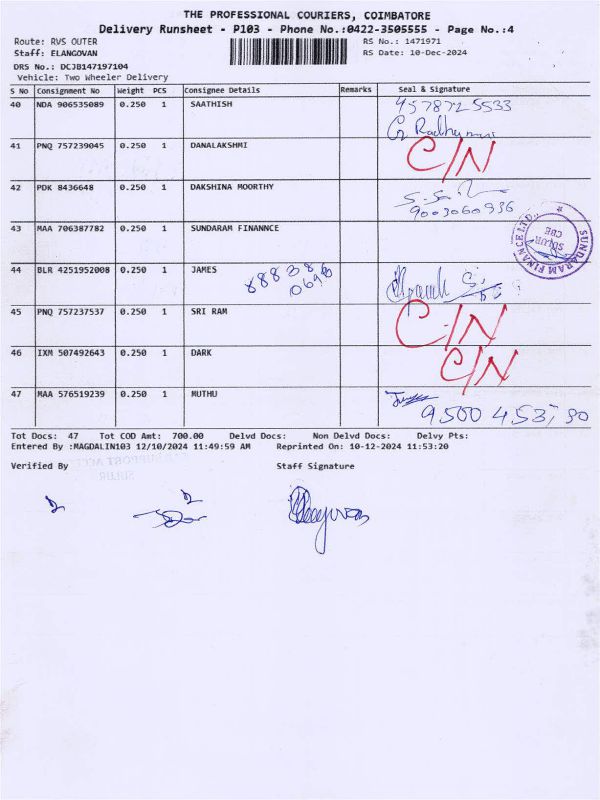 THE PROFESSIONAL COURIERS, COIMBATORE
Delivery Runsheet - P103 - Phone No.:0422-3505555 - Page No.:4
Route: RVS OUTER RS No.: 1471971
Staff: ELANGOVAN RS Date: 10-Dec-2024
DRS No.: DCJB147197104
Vehicle: Two Wheeler Delivery
S No Consignment No Weight PCS Consignee Details Remarks Seal & Signature
40 NDA 906535089 0.250 1 SAATHISH
41 PNQ 757239045 0.250 1 DANALAKSHMI C/N
42 PDK 8436648 0.250 1 DAKSHINA MOORTHY
9003060936
43 MAA 706387782 0.250 1 SUNDARAM FINANNCE
SUNDARAM FINANCE LTD.
SULUR
CBE
44 BLR 4251952008 0.250 1 JAMES
45 PNQ 757237537 0.250 1 SRI RAM C/N
46 IXM 507492643 0.250 1 DARK C/N
47 MAA 576519239 0.250 1 MUTHU
Tot Docs: 47 Tot COD Amt: 700.00 Delvd Docs: Non Delvd Docs: Delvy Pts:
Entered By :MAGDALIN103 12/10/2024 11:49:59 AM Reprinted On: 10-12-2024 11:53:20
Verified By Staff Signature